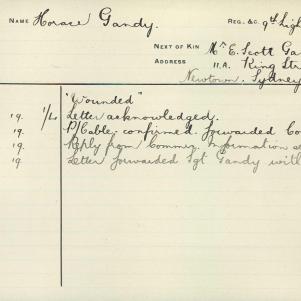 NAME Horace Gandy. REG. &C. 9th Lig
NEXT OF KIN Mr E. Scott Ga
ADDRESS 11A. King Str
Newtown. Sydney
"Wounded"
19. 1/4 Letter acknowledged.
19. P/Cable. confirmed. forwarded Co
19. Reply from Commr. Information se
19 Letter forwarded Sgt Gandy with